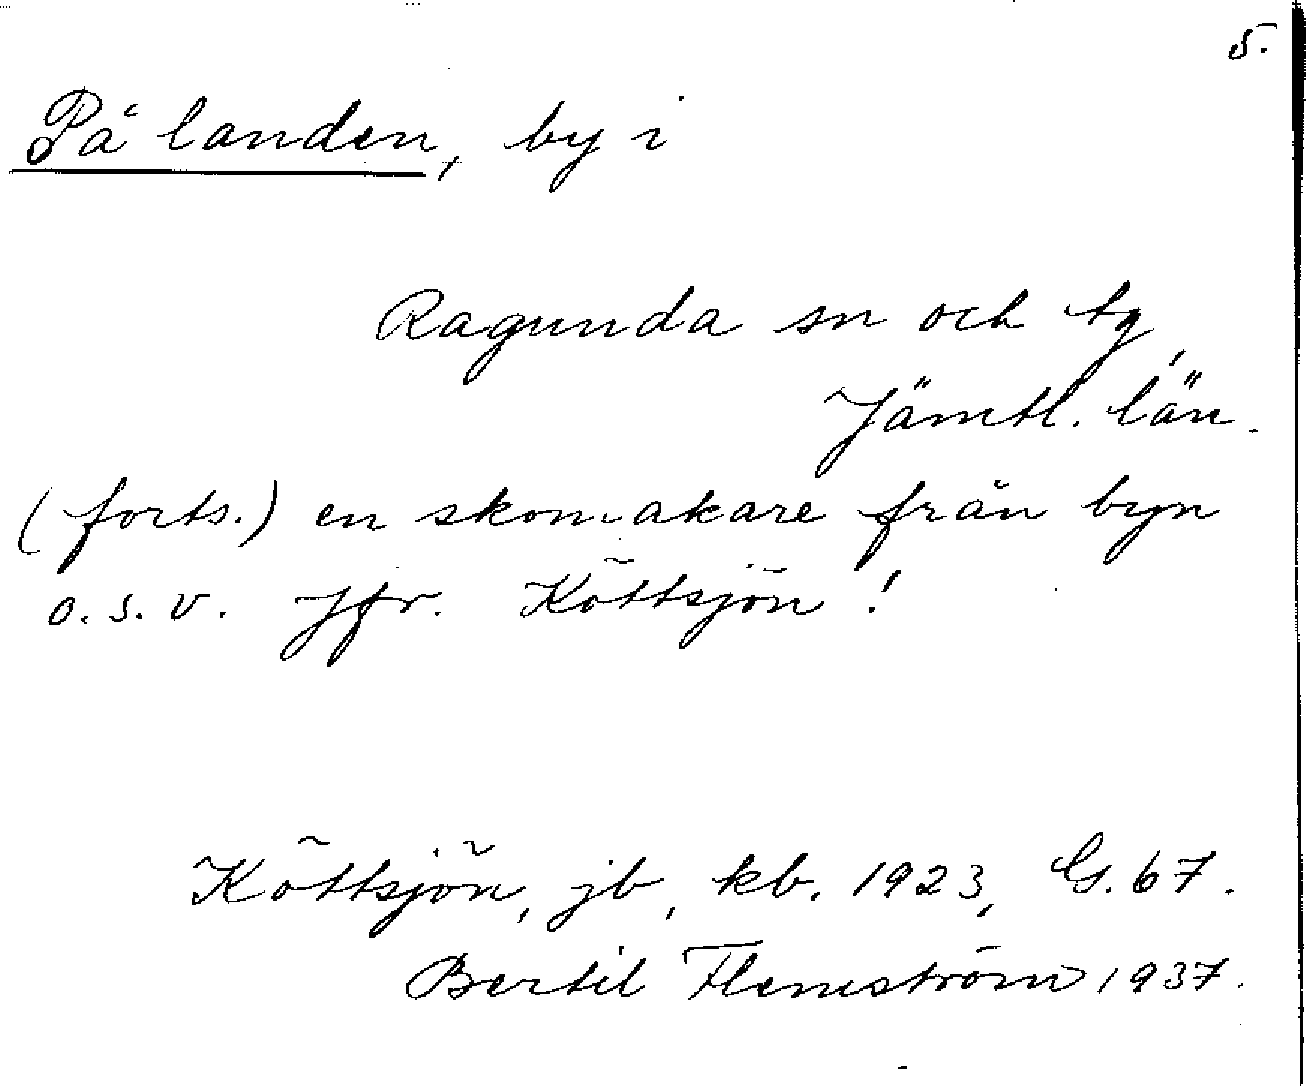 5.
På landen, by i
Ragunda sn och tg,
Jämtl. län.
(forts.) en skomakare från byn
o.s.v. Jfr. Köttsjön!
Köttsjön, jb, kb. 1923, G. 67.
Bertil Flemström 1937.